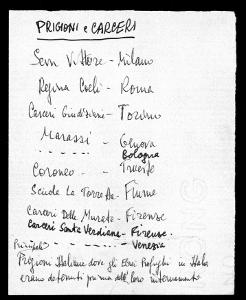 PRIGIONI e CARCERI
San Vittore - Milano
Regina Coeli - Roma
Carceri Giudiziarie - Torino
Marassi - Genova
Bologna
Coroneo - Trieste
Scuola La Torretta - Fiume
Carceri Delle Murate - Firenze
Carceri Santa Verdiana - Firenze.
- Venezia
Prigioni Italiane dove gli Ebrei Profughi in Italia
erano detenuti prima dell' loro internamento